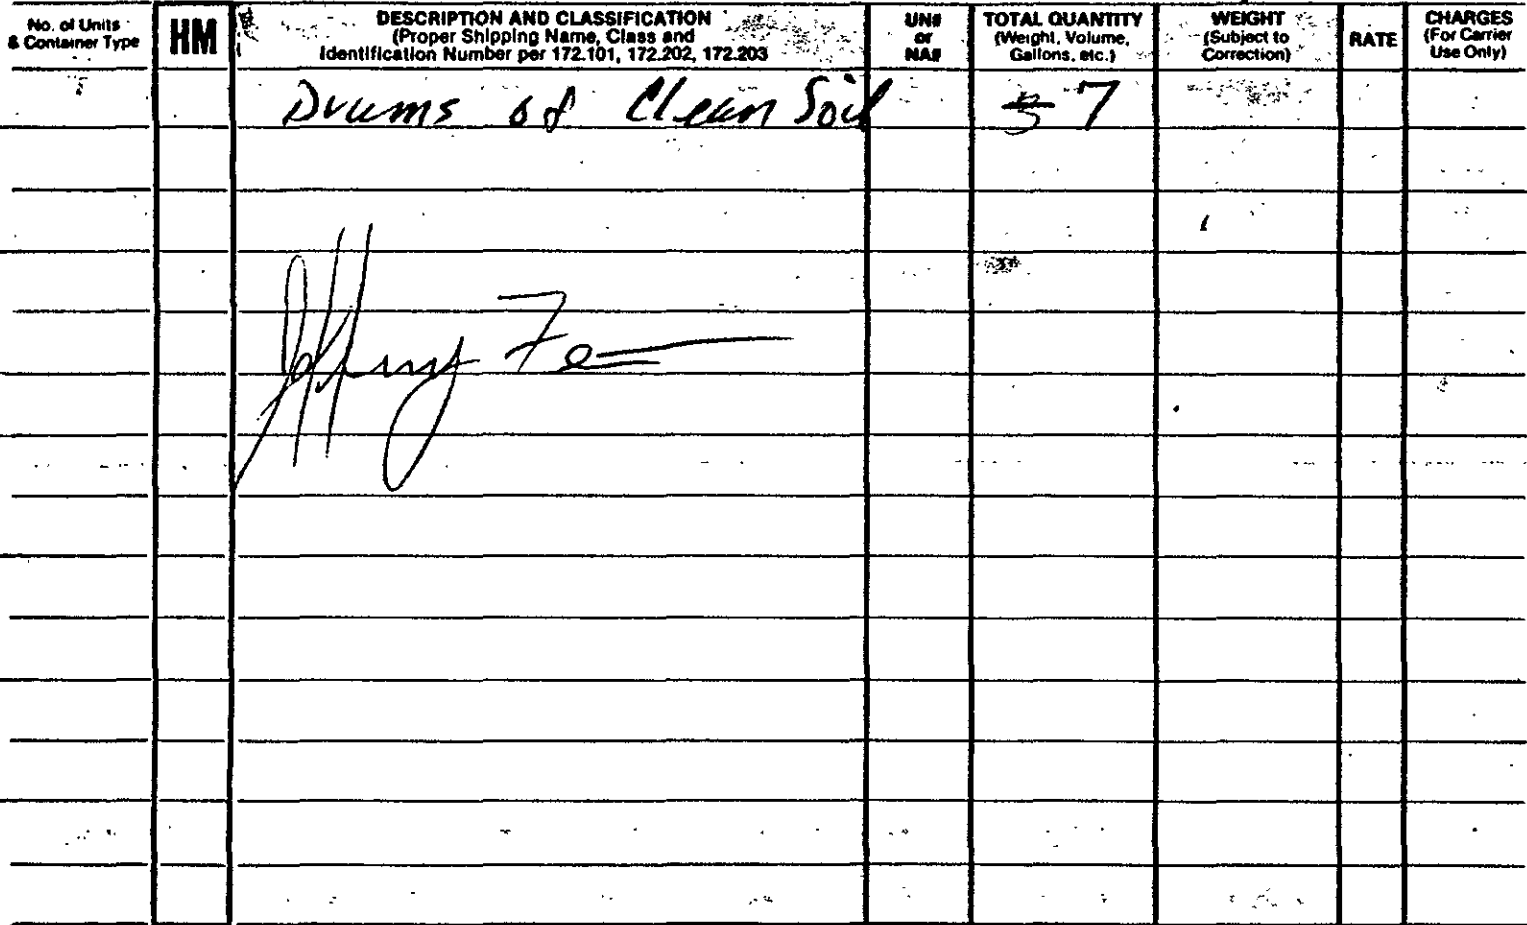 No. of Units
& Container Type
HM
DESCRIPTION AND CLASSIFICATION
(Proper Shipping Name, Class and
Identification Number per 172.101, 172.202, 172.203
UN#
or
NA#
TOTAL QUANTITY
(Weight, Volume,
Gallons, etc.)
WEIGHT
(Subject to
Correction)
RATE
CHARGES
(For Carrier
Use Only)
Drums of Clean Soil 7